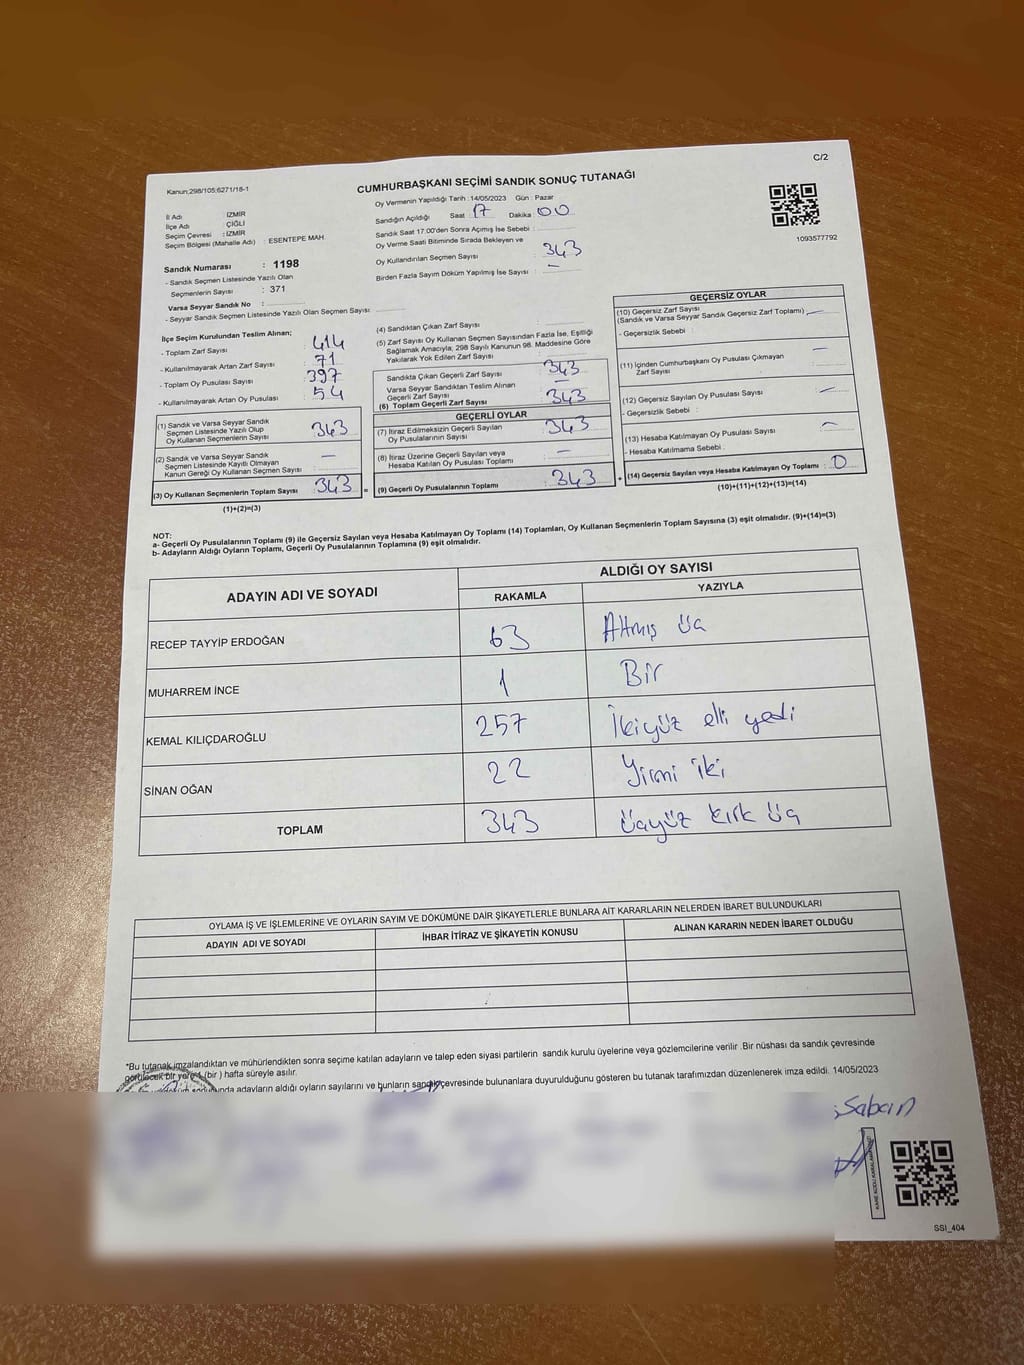 C/2
Kanun;298/105;6271/18-1
CUMHURBAŞKANI SEÇİMİ SANDIK SONUÇ TUTANAĞI
İl Adı İZMİR
İlçe Adı ÇİĞLİ
Seçim Çevresi : İZMİR
Seçim Bölgesi (Mahalle Adı) : ESENTEPE MAH.
Sandık Numarası : 1198
- Sandık Seçmen Listesinde Yazılı Olan
Seçmenlerin Sayısı : 371
Varsa Seyyar Sandık No :
- Seyyar Sandık Seçmen Listesinde Yazılı Olan Seçmen Sayısı:
Oy Vermenin Yapıldığı Tarih :14/05/2023 Gün : Pazar
Sandığın Açıldığı Saat 17 Dakika 00
Sandık Saat 17.00'den Sonra Açımış İse Sebebi :
Oy Verme Saati Bitiminde Sırada Bekleyen ve
Oy Kullandırılan Seçmen Sayısı : 343
Birden Fazla Sayım Döküm Yapılmış İse Sayısı : —
1093577792
İlçe Seçim Kurulundan Teslim Alınan;
- Toplam Zarf Sayısı : 414
- Kullanılmayarak Artan Zarf Sayısı : 71
- Toplam Oy Pusulası Sayısı : 397
- Kullanılmayarak Artan Oy Pusulası : 54
(1) Sandık ve Varsa Seyyar Sandık
Seçmen Listesinde Yazılı Olup
Oy Kullanan Seçmenlerin Sayısı : 343
(2) Sandık ve Varsa Seyyar Sandık
Seçmen Listesinde Kayıtlı Olmayan
Kanun Gereği Oy Kullanan Seçmen Sayısı : —
(3) Oy Kullanan Seçmenlerin Toplam Sayısı : 343 =
(1)+(2)=(3)
(4) Sandıktan Çıkan Zarf Sayısı :
(5) Zarf Sayısı Oy Kullanan Seçmen Sayısından Fazla İse, Eşitliği
Sağlamak Amacıyla; 298 Sayılı Kanunun 98. Maddesine Göre
Yakılarak Yok Edilen Zarf Sayısı :
Sandıkta Çıkan Geçerli Zarf Sayısı : 343
Varsa Seyyar Sandıktan Teslim Alınan
Geçerli Zarf Sayısı : —
(6) Toplam Geçerli Zarf Sayısı : 343
GEÇERLİ OYLAR
(7) İtiraz Edilmeksizin Geçerli Sayılan
Oy Pusulalarının Sayısı : 343
(8) İtiraz Üzerine Geçerli Sayılan veya
Hesaba Katılan Oy Pusulası Toplamı : —
(9) Geçerli Oy Pusulalarının Toplamı : 343 +
GEÇERSİZ OYLAR
(10) Geçersiz Zarf Sayısı
(Sandık ve Varsa Seyyar Sandık Geçersiz Zarf Toplamı) : —
- Geçersizlik Sebebi :
(11) İçinden Cumhurbaşkanı Oy Pusulası Çıkmayan
Zarf Sayısı : —
(12) Geçersiz Sayılan Oy Pusulası Sayısı : —
- Geçersizlik Sebebi :
(13) Hesaba Katılmayan Oy Pusulası Sayısı : —
- Hesaba Katılmama Sebebi :
(14) Geçersiz Sayılan veya Hesaba Katılmayan Oy Toplamı : 0
(10)+(11)+(12)+(13)=(14)
NOT:
a- Geçerli Oy Pusulalarının Toplamı (9) ile Geçersiz Sayılan veya Hesaba Katılmayan Oy Toplamı (14) Toplamları, Oy Kullanan Seçmenlerin Toplam Sayısına (3) eşit olmalıdır. (9)+(14)=(3)
b- Adayların Aldığı Oyların Toplamı, Geçerli Oy Pusulalarının Toplamına (9) eşit olmalıdır.
ADAYIN ADI VE SOYADI ALDIĞI OY SAYISI
RAKAMLA YAZIYLA
RECEP TAYYİP ERDOĞAN 63 Altmış üç
MUHARREM İNCE 1 Bir
KEMAL KILIÇDAROĞLU 257 İkiyüz elli yedi
SİNAN OĞAN 22 Yirmi iki
TOPLAM 343 Üçyüz kırk üç
OYLAMA İŞ VE İŞLEMLERİNE VE OYLARIN SAYIM VE DÖKÜMÜNE DAİR ŞİKAYETLERLE BUNLARA AİT KARARLARIN NELERDEN İBARET BULUNDUKLARI
ADAYIN ADI VE SOYADI İHBAR İTİRAZ VE ŞİKAYETİN KONUSU ALINAN KARARIN NEDEN İBARET OLDUĞU
*Bu tutanak imzalandıktan ve mühürlendikten sonra seçime katılan adayların ve talep eden siyasi partilerin sandık kurulu üyelerine veya gözlemcilerine verilir .Bir nüshası da sandık çevresinde
görülecek bir yere 1 (bir ) hafta süreyle asılır.
adayların aldığı oyların sayılarını ve bunların sandık çevresinde bulunanlara duyurulduğunu gösteren bu tutanak tarafımızdan düzenlenerek imza edildi. 14/05/2023
Saban
SSI_404